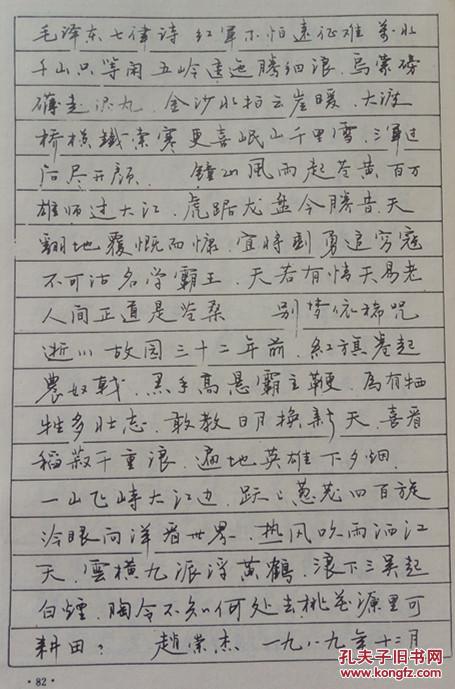 毛泽东七律诗 红军不怕远征难 万水
千山只等闲 五岭逶迤腾细浪.乌蒙磅
礴走泥丸.金沙水拍云崖暖.大渡
桥横鐵索寒更喜岷山千里雪.三军过
后尽开颜. 鐘山風雨起苍黄.百万
雄师过大江.虎踞龙盘今勝昔.天
翻地覆慨而慷.宜将剩勇追穷寇
不可沽名学霸王.天若有情天易老
人间正道是苍桑 别梦依稀咒
逝川 故园三十二年前.紅旗卷起
農奴戟.黑手高悬霸主鞭.為有牺
牲多壮志.敢教日月换新天.喜看
稻菽千重浪.遍地英雄下夕烟.
一山飞峙大江边.跃上葱茏四百旋
冷眼向洋看世界.热风吹雨洒江
天.雲横九派浮黄鶴.浪下三吴起
白煙.陶令不知何处去桃花源里可
耕田? 趙荣杰.一九八九年十二月
·82·
孔夫子旧书网